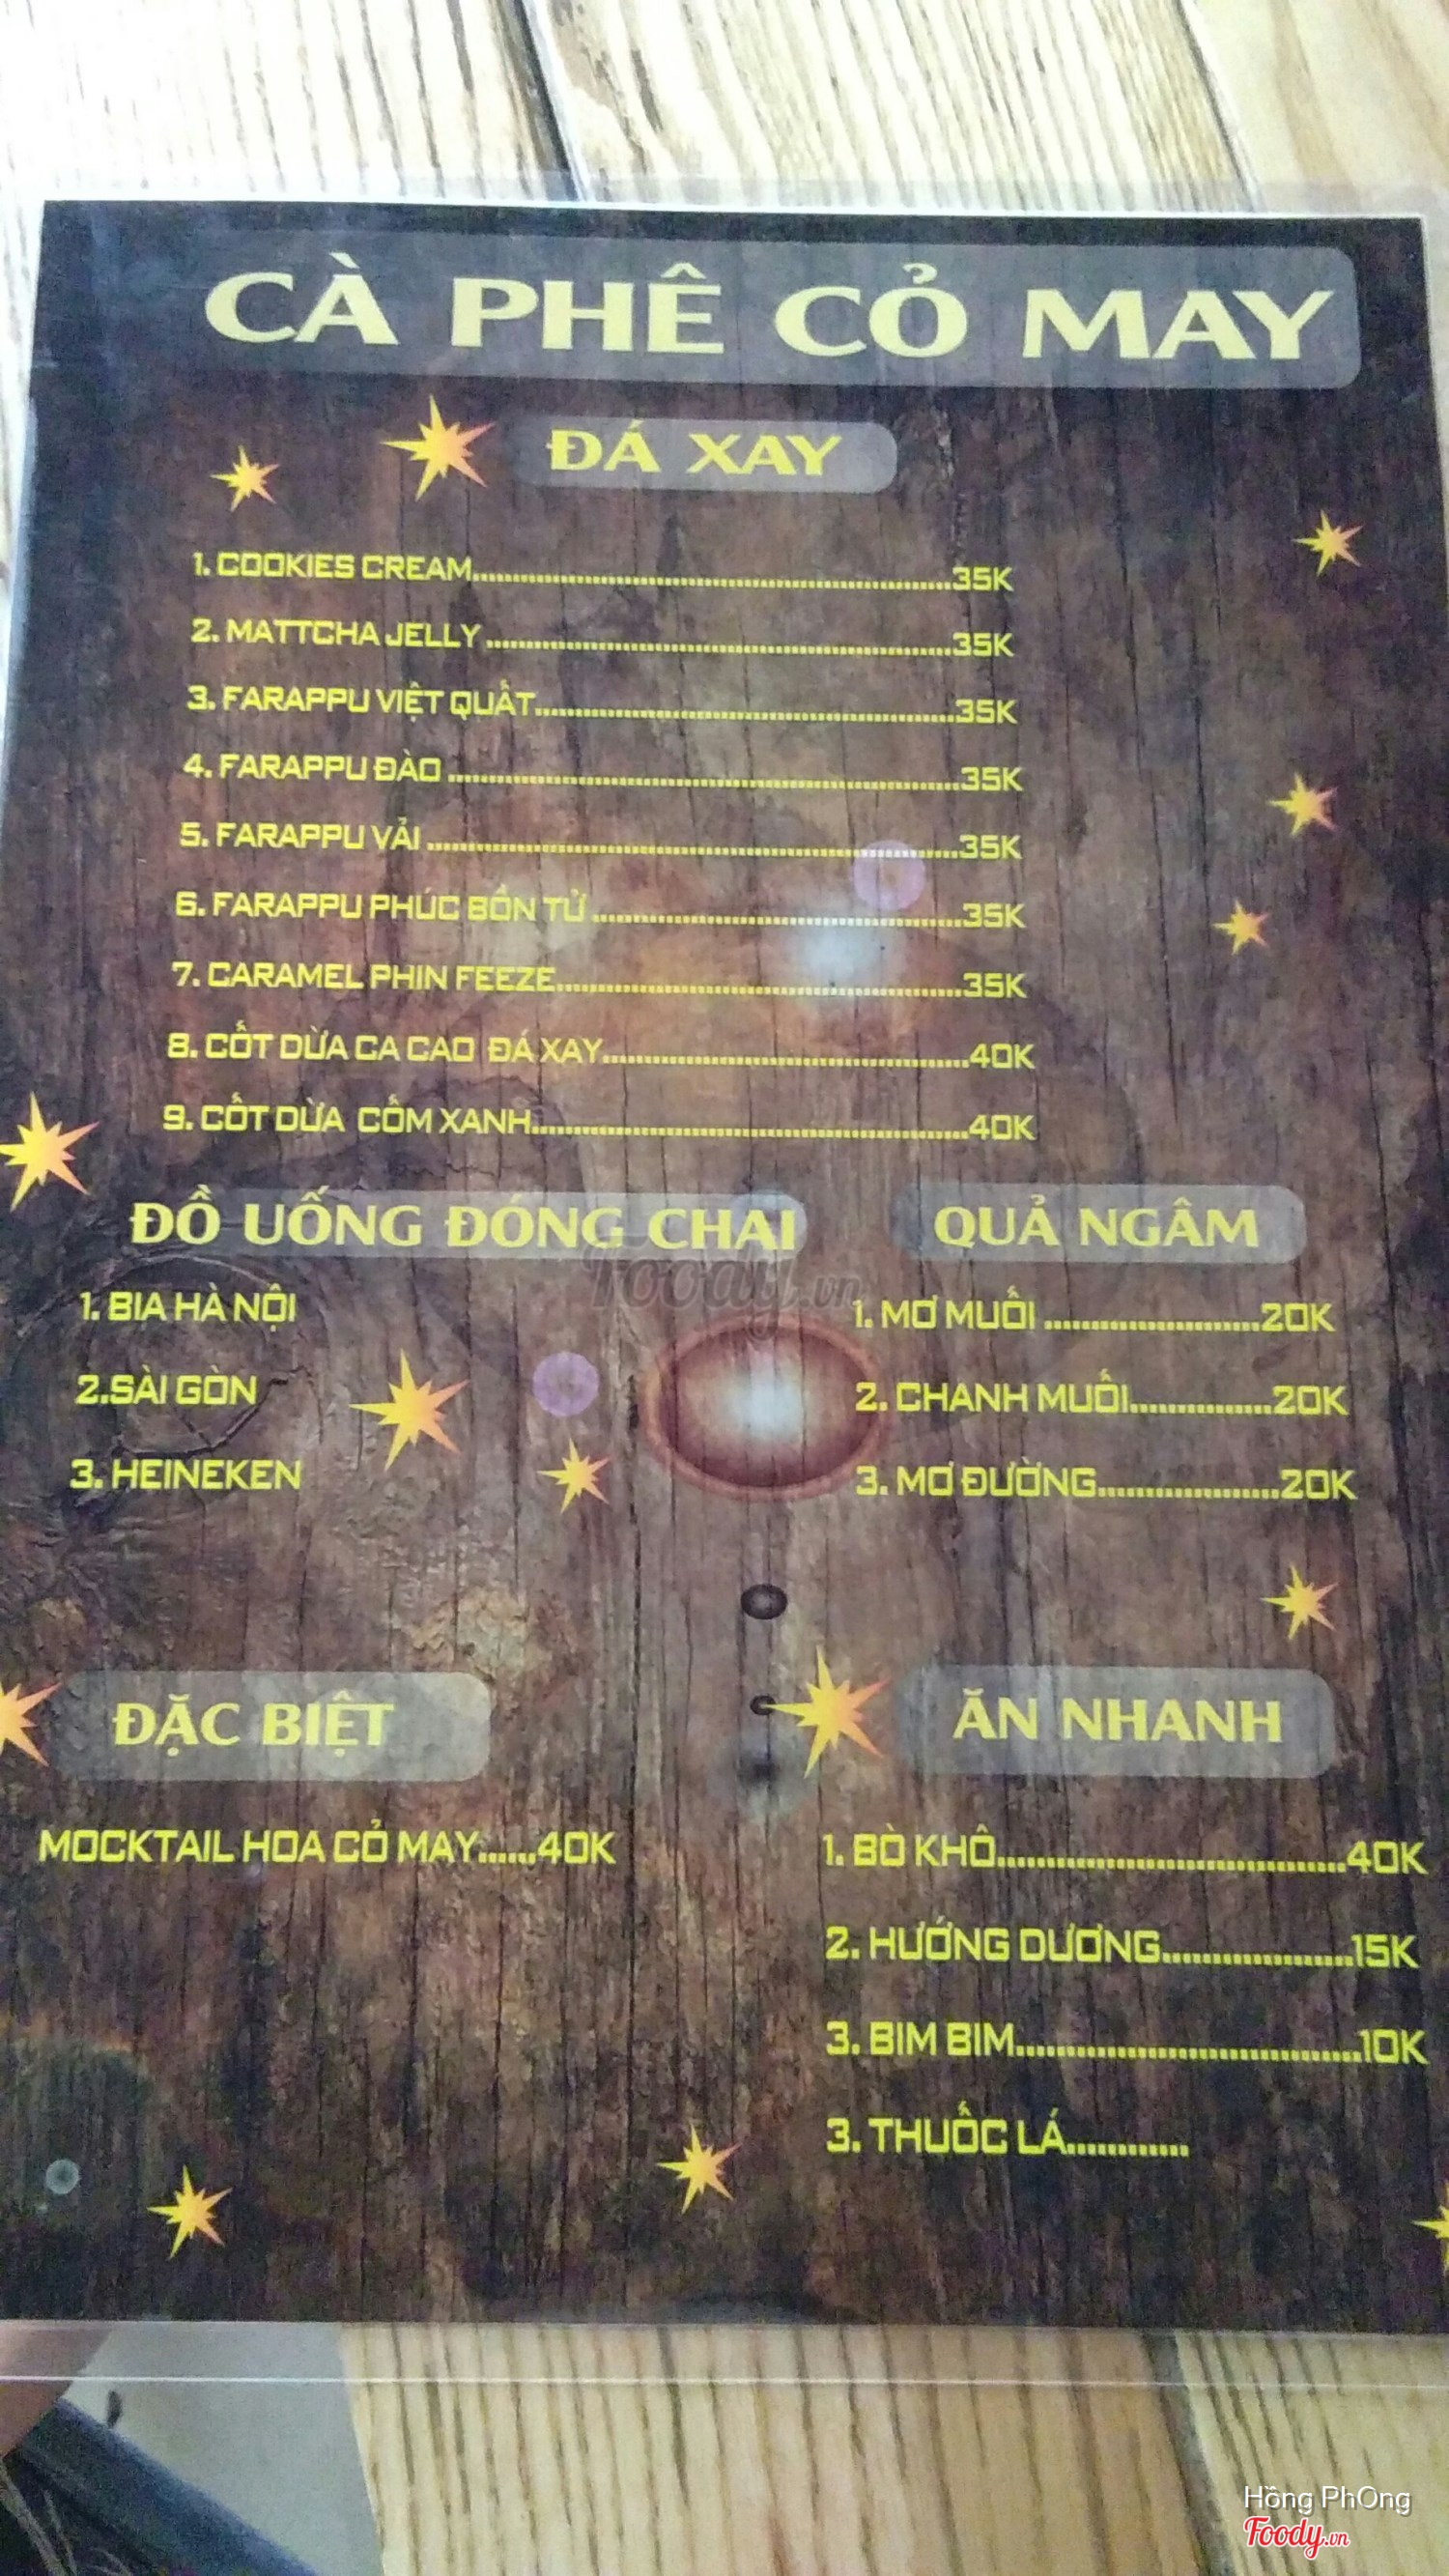 CÀ PHÊ CỎ MAY
ĐÁ XAY
1. COOKIES CREAM............35K
2. MATTCHA JELLY............35K
3. FARAPPU VIỆT QUẤT............35K
4. FARAPPU ĐÀO............35K
5. FARAPPU VẢI............35K
6. FARAPPU PHÚC BỒN TỬ............35K
7. CARAMEL PHIN FEEZE............35K
8. CỐT DỪA CA CAO ĐÁ XAY............40K
9. CỐT DỪA CỐM XANH............40K
ĐỒ UỐNG ĐÓNG CHAI
1. BIA HÀ NỘI
2.SÀI GÒN
3. HEINEKEN
QUẢ NGÂM
1. MƠ MUỐI............20K
2. CHANH MUỐI............20K
3. MƠ ĐƯỜNG............20K
ĐẶC BIỆT
MOCKTAIL HOA CỎ MAY......40K
ĂN NHANH
1. BÒ KHÔ............40K
2. HƯỚNG DƯƠNG............15K
3. BIM BIM............10K
3. THUỐC LÁ............
Foody.vn
Hồng PhOng
Foody.vn